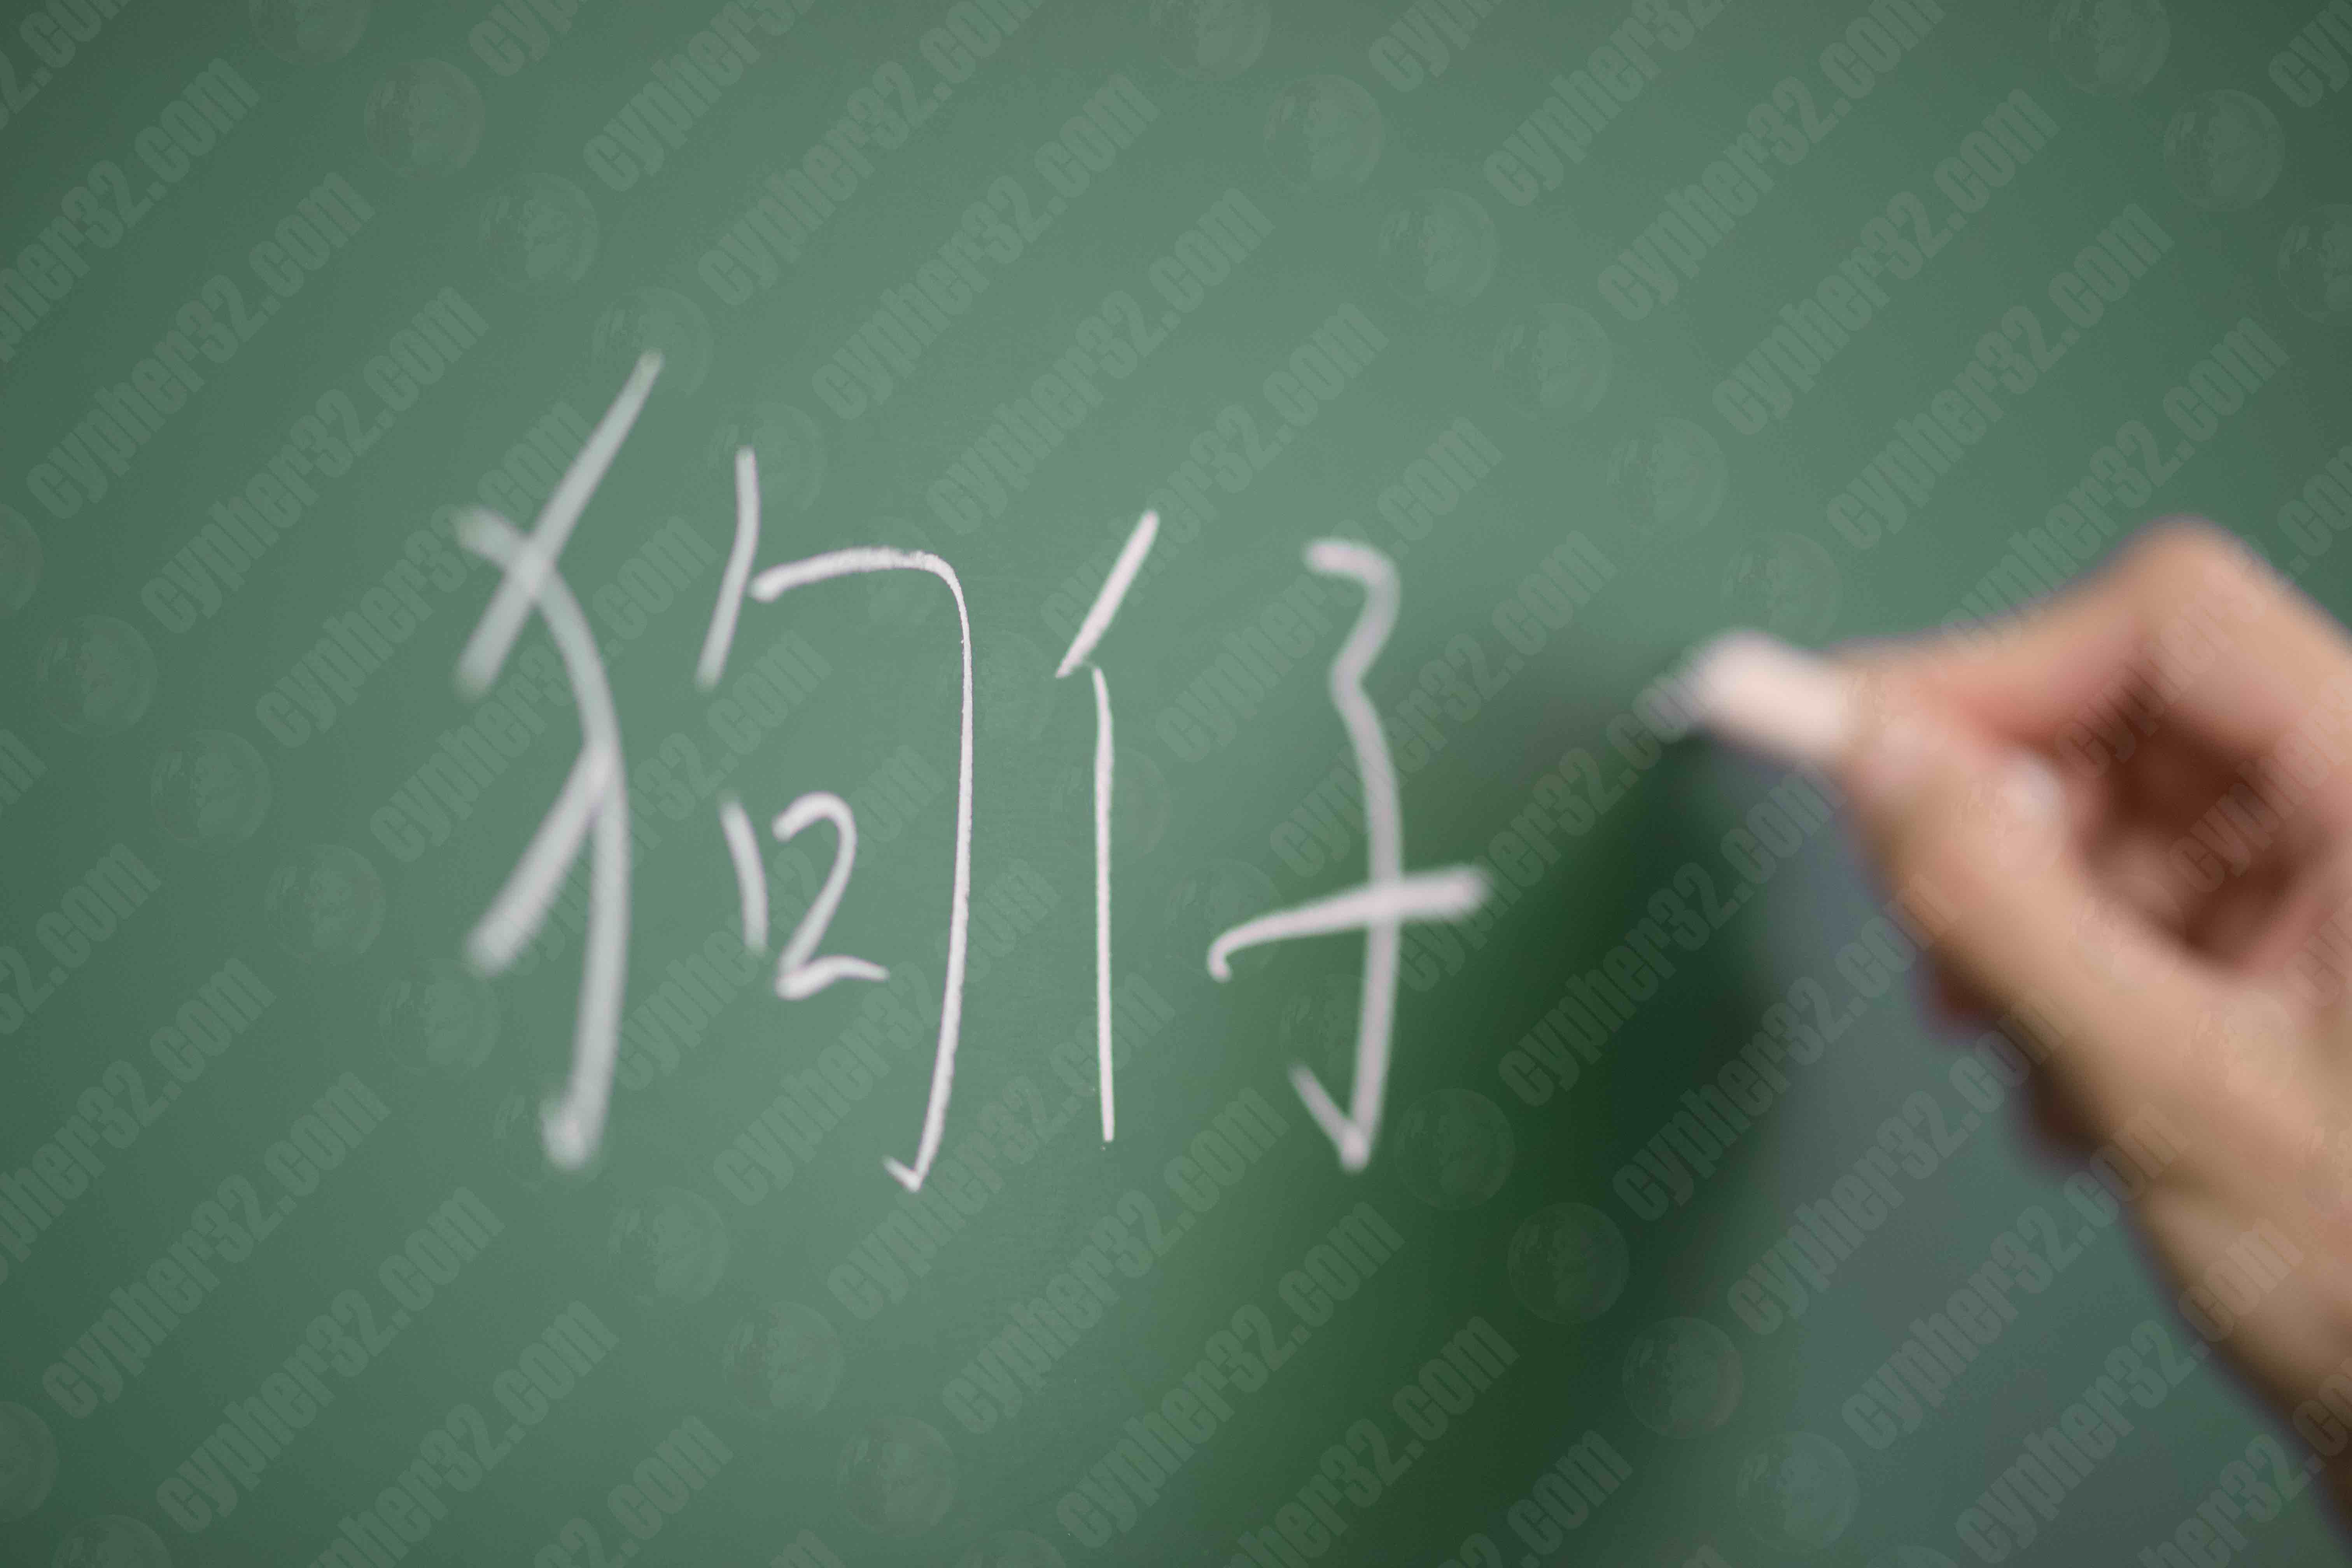 狗仔
cypher32.com